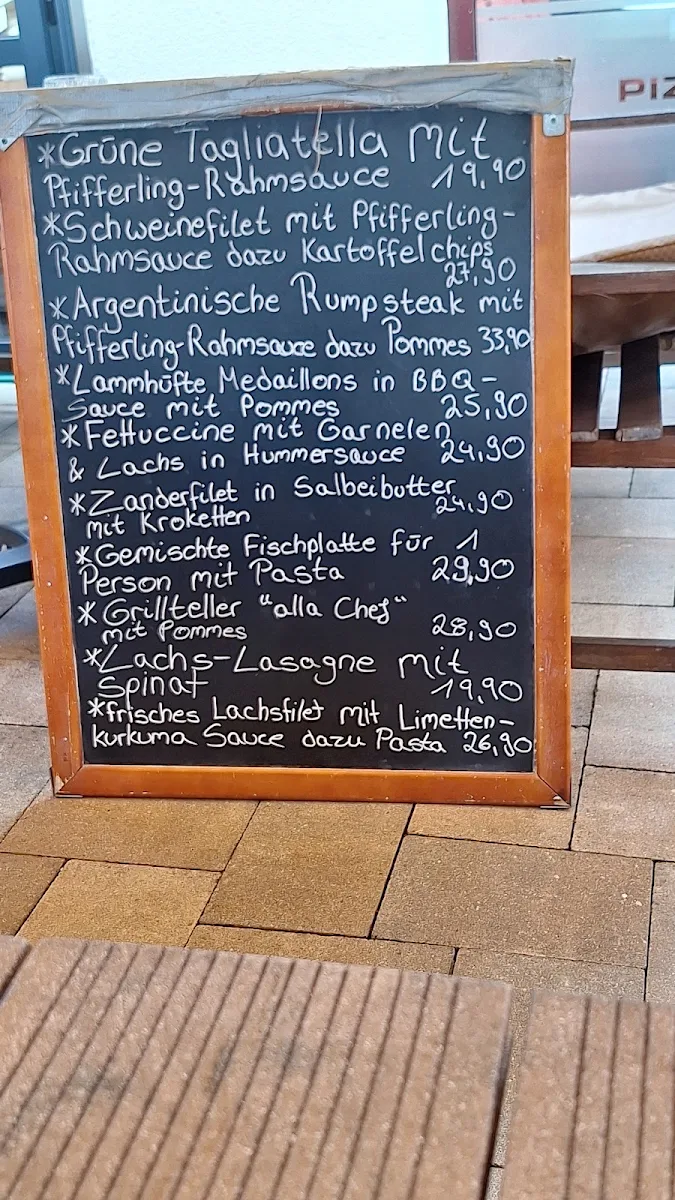 PiZ
*Grüne Tagliatella mit
Pfifferling-Rahmsauce 19,90
*Schweinefilet mit Pfifferling-
Rahmsauce dazu Kartoffelchips
27,90
*Argentinische Rumpsteak mit
Pfifferling-Rahmsauce dazu Pommes 33,90
*Lammhüfte Medaillons in BBQ-
Sauce mit Pommes 25,90
*Fettuccine mit Garnelen
& Lachs in Hummersauce 24,90
*Zanderfilet in Salbeibutter
mit Kroketten 24,90
*Gemischte Fischplatte für 1
Person mit Pasta 29,90
*Grillteller "alla Chef"
mit Pommes 28,90
*Lachs-Lasagne mit
Spinat 19,90
*frisches Lachsfilet mit Limetten-
kurkuma Sauce dazu Pasta 26,90